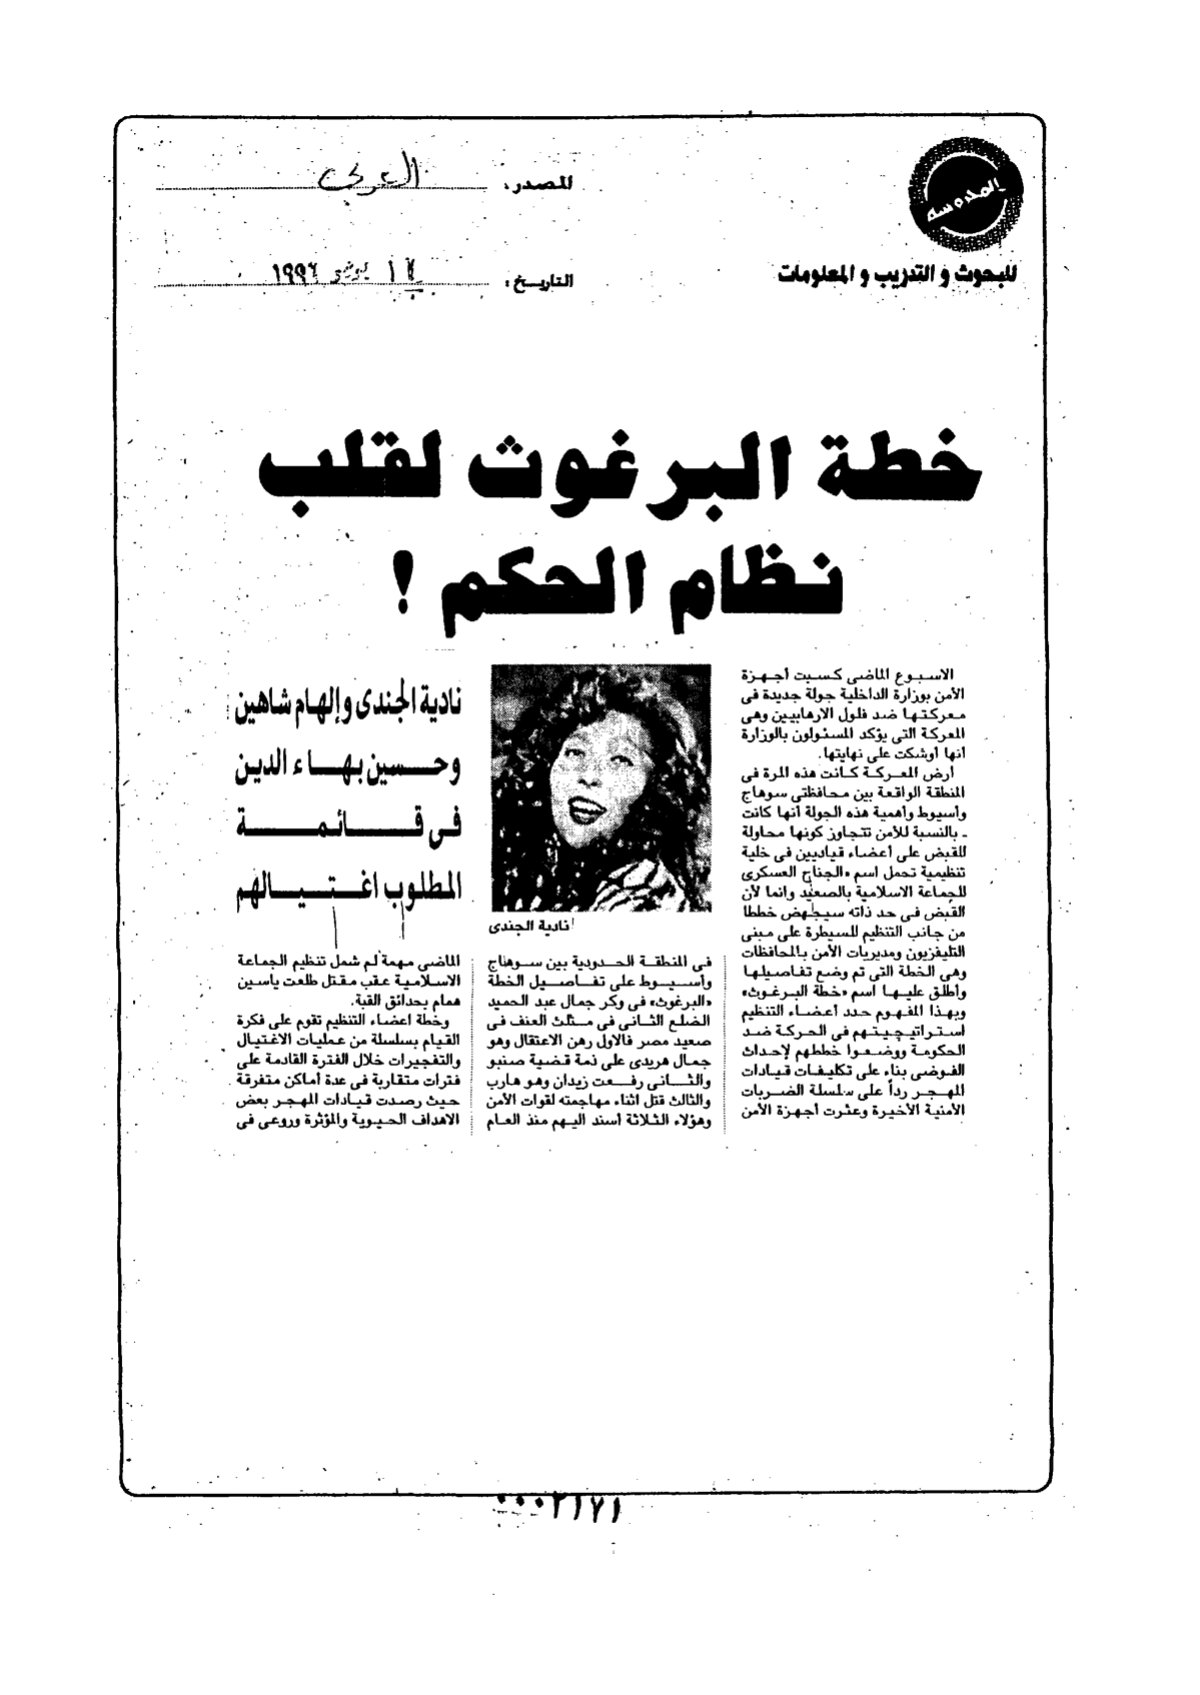 المحروسة
للبحوث و التدريب و المعلومات
المصدر: العربي
التاريخ: يونيو ١٩٩٦
خطة البرغوث لقلب
نظام الحكم !
الاسبوع الماضى كسبت أجهزة
الأمن بوزارة الداخلية جولة جديدة فى
معركتها ضد فلول الارهابيين وهى
المعركة التى يؤكد المسئولون بالوزارة
انها أوشكت على نهايتها.
أرض المعركة كانت هذه المرة فى
المنطقة الواقعة بين محافظتى سوهاج
وأسيوط وأهمية هذه الجولة أنها كانت
- بالنسبة للأمن تتجاوز كونها محاولة
للقبض على أعضاء قياديين فى خلية
تنظيمية تحمل اسم «الجناح العسكرى
للجماعة الاسلامية بالصعيد وانما لأن
القبض فى حد ذاته سيجهض خططا
من جانب التنظيم للسيطرة على مبنى
التليفزيون ومديريات الأمن بالمحافظات
وهى الخطة التى تم وضع تفاصيلها
وأطلق عليها اسم «خطة البرغوث»
وبهذا المفهوم حدد أعضاء التنظيم
استراتيجيتهم فى الحركة ضد
الحكومة ووضعوا خططهم لإحداث
الفوضى بناء على تكليفات قيادات
المهجر رداً على سلسلة الضربات
الأمنية الأخيرة وعثرت أجهزة الأمن
نادية الجندى
فى المنطقة الحدودية بين سوهاج
وأسيوط على تفاصيل الخطة
«البرغوث» فى وكر جمال عبد الحميد
الضلع الثانى فى مثلث العنف فى
صعيد مصر فالاول رهن الاعتقال وهو
جمال هريدى على ذمة قضية صنبو
والثانى رفعت زيدان وهو هارب
والثالث قتل اثناء مهاجمته لقوات الأمن
وهؤلاء الثلاثة أسند اليهم منذ العام
نادية الجندى وإلهام شاهين
وحسين بهاء الدين
فى قائمة
المطلوب اغتيالهم
الماضى مهمة لم شمل تنظيم الجماعة
الاسلامية عقب مقتل طلعت ياسين
همام بحدائق القبة.
وخطة اعضاء التنظيم تقوم على فكرة
القيام بسلسلة من عمليات الاغتيال
والتفجيرات خلال الفترة القادمة على
فترات متقاربة فى عدة أماكن متفرقة
حيث رصدت قيادات المهجر بعض
الاهداف الحيوية والمؤثرة وروعى فى
٠٠٠٢١٧١